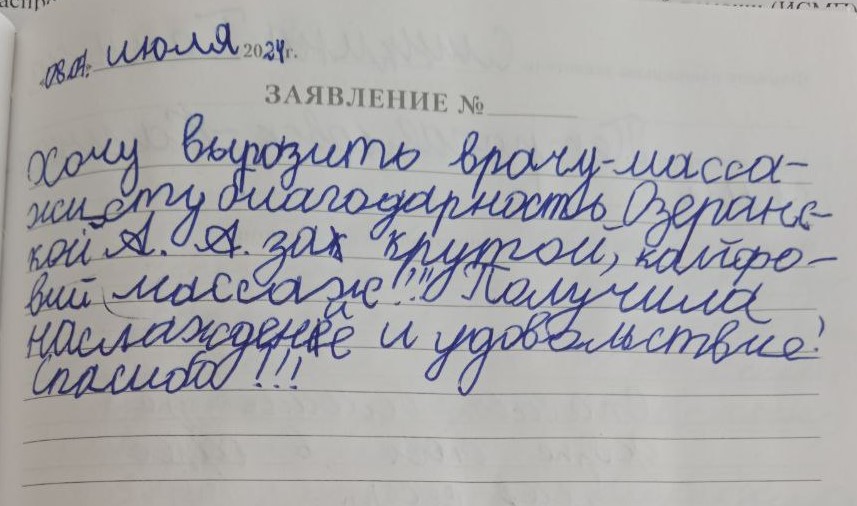 08.07. июля 2024г.
ЗАЯВЛЕНИЕ №
Хочу выразить врачу-масса-
жисту благодарность Озеранс-
кой А. А. за крутой, кайфо-
вий массаж!!! Получила
наслаждение и удовольствие!
Спасибо!!!